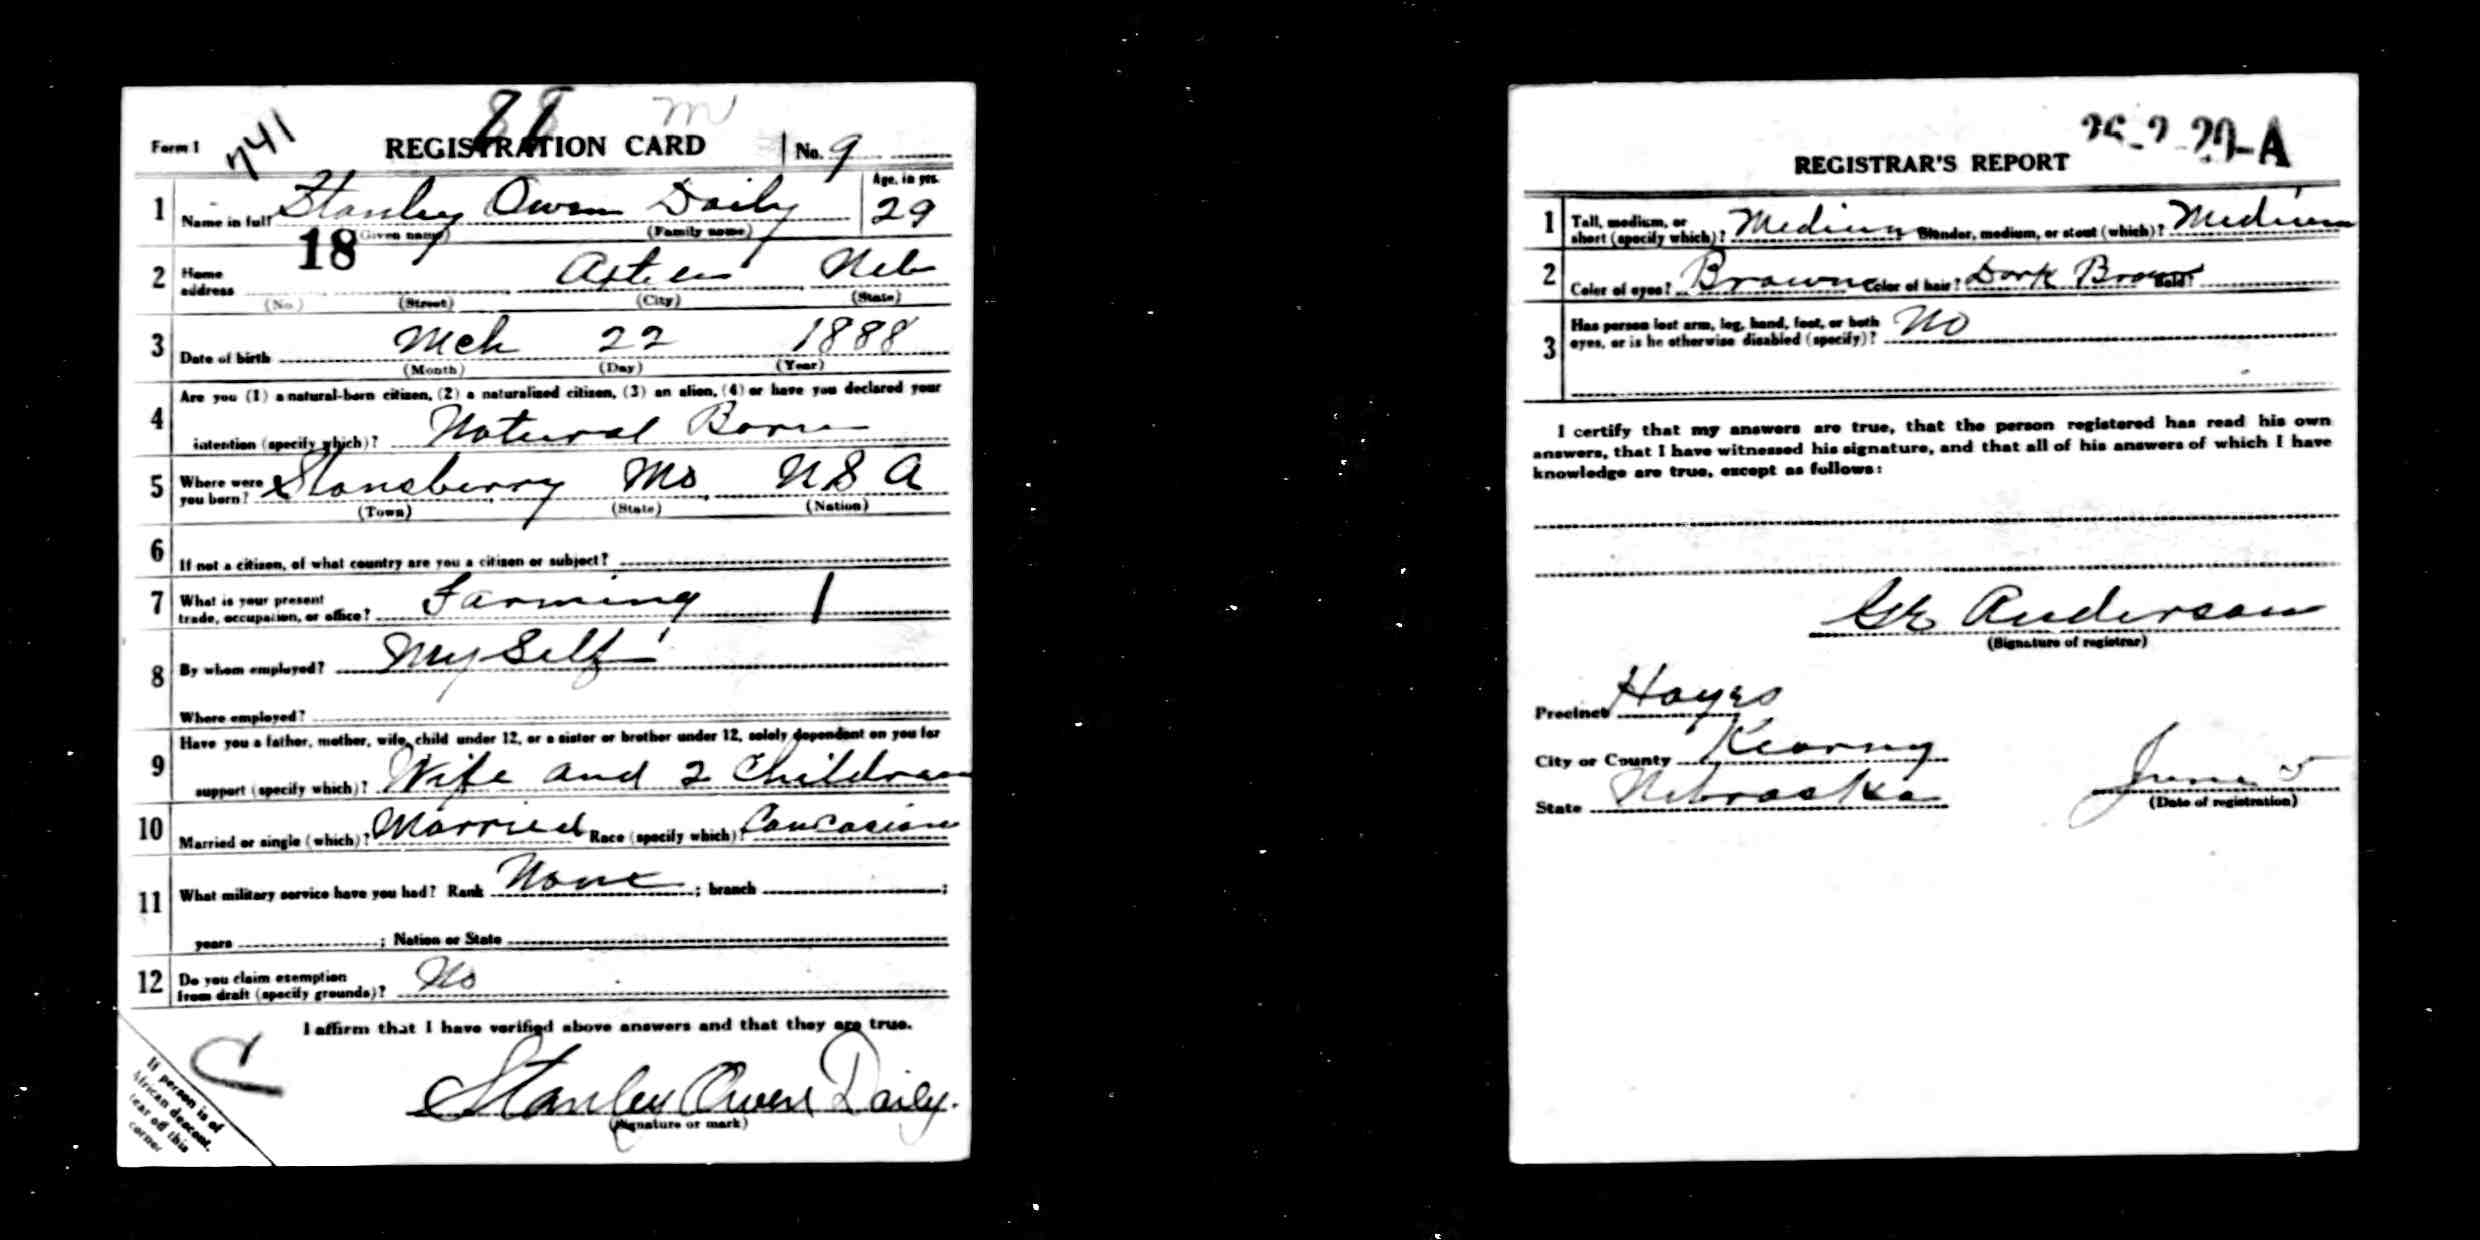 741
88 m
Form 1 REGISTRATION CARD No. 9
1 Name in full Stanley Owen Daily Age, in yrs. 29
(Given name) (Family name)
18
2 Home address Axtell Neb
(No.) (Street) (City) (State)
3 Date of birth Mch 22 1888
(Month) (Day) (Year)
4 Are you (1) a natural-born citizen, (2) a naturalized citizen, (3) an alien, (4) or have you declared your
intention (specify which)? Natural Born
5 Where were you born? Stansberry Mo U S A
(Town) (State) (Nation)
6 If not a citizen, of what country are you a citizen or subject?
7 What is your present trade, occupation, or office? Farming 1
8 By whom employed? My Self
Where employed?
9 Have you a father, mother, wife, child under 12, or a sister or brother under 12, solely dependent on you for
support (specify which)? Wife and 2 Children
10 Married or single (which)? Married Race (specify which)? Caucasian
11 What military service have you had? Rank None ; branch ;
years ; Nation or State
12 Do you claim exemption from draft (specify grounds)? No
I affirm that I have verified above answers and that they are true.
Stanley Owen Daily.
(Signature or mark)
If person is of
African descent,
tear off this
corner
C
REGISTRAR'S REPORT
26-2-20-A
1 Tall, medium, or short (specify which)? Medium Slender, medium, or stout (which)? Medium
2 Color of eyes? Brown Color of hair? Dark Brown Bald?
3 Has person lost arm, leg, hand, foot, or both
eyes, or is he otherwise disabled (specify)? No
I certify that my answers are true, that the person registered has read his own
answers, that I have witnessed his signature, and that all of his answers of which I have
knowledge are true, except as follows:
Anderson
(Signature of registrar)
Precinct Hayes
City or County Kearny
State Nebraska
June 5
(Date of registration)